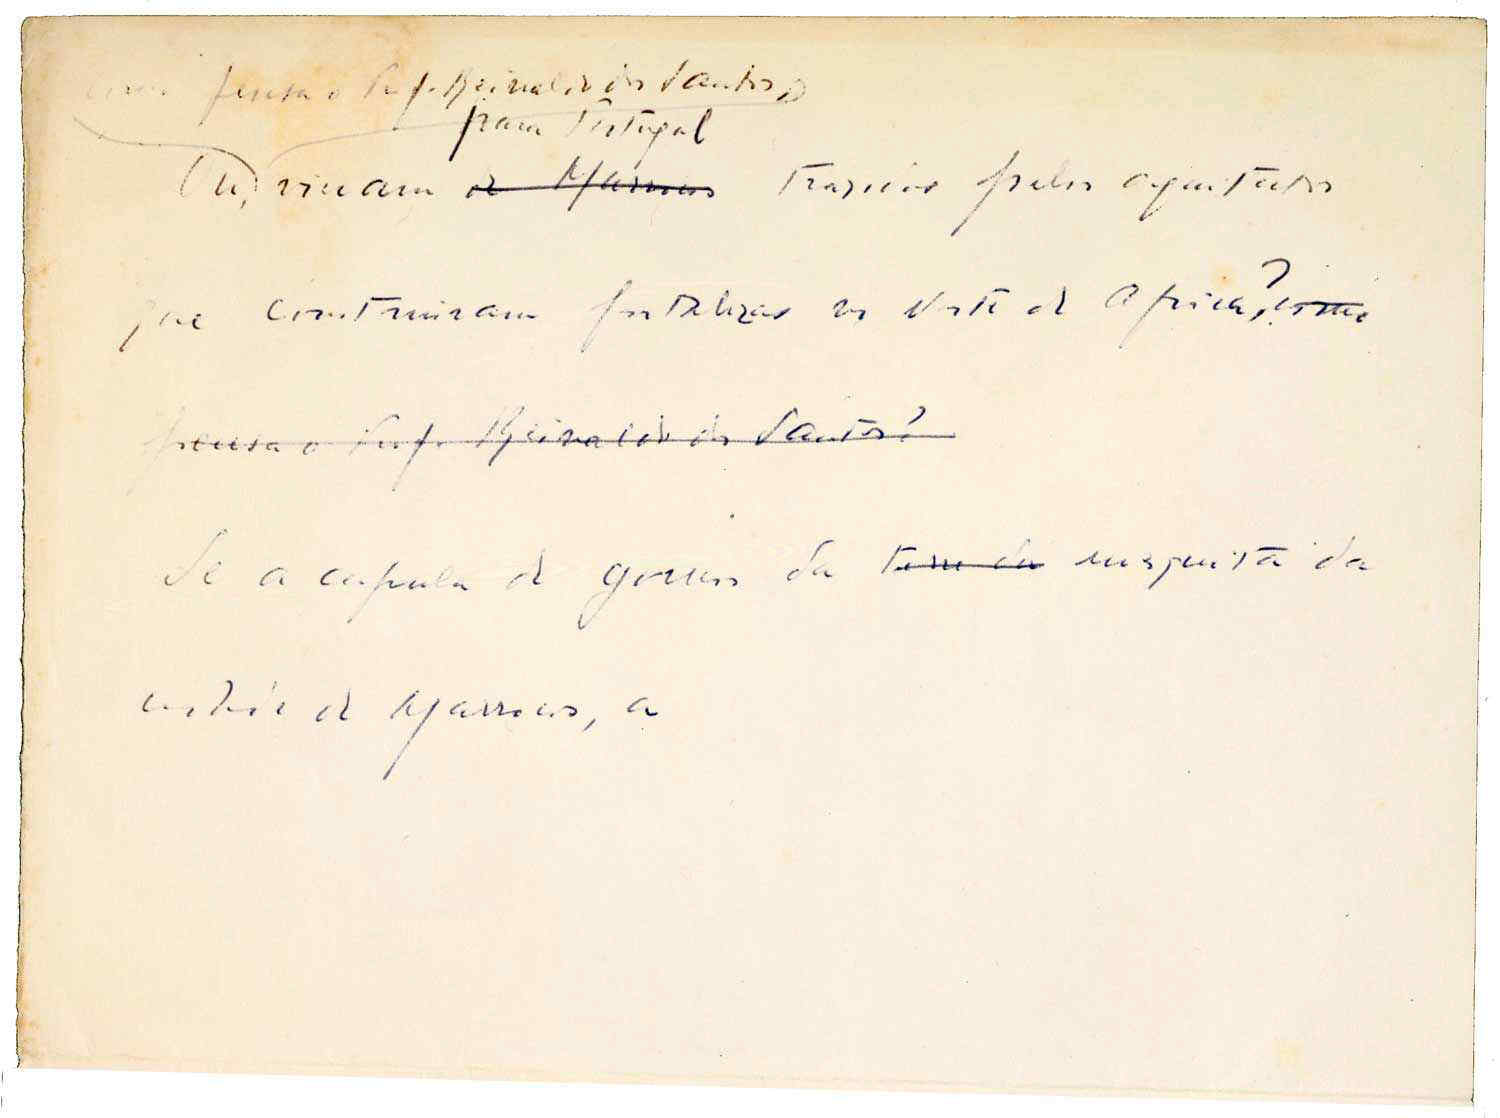 como pensa o Prof. Reinaldo dos Santos,
para Portugal
Ou, viriam de Marrocos trazidas pelos arquitectos
que construiram fortalezas no Norte de Africa?, como
pensa o Prof. Reinaldo dos Santos?
Se a cupula de gomos da torre da mesquita da
de Marrocos, a